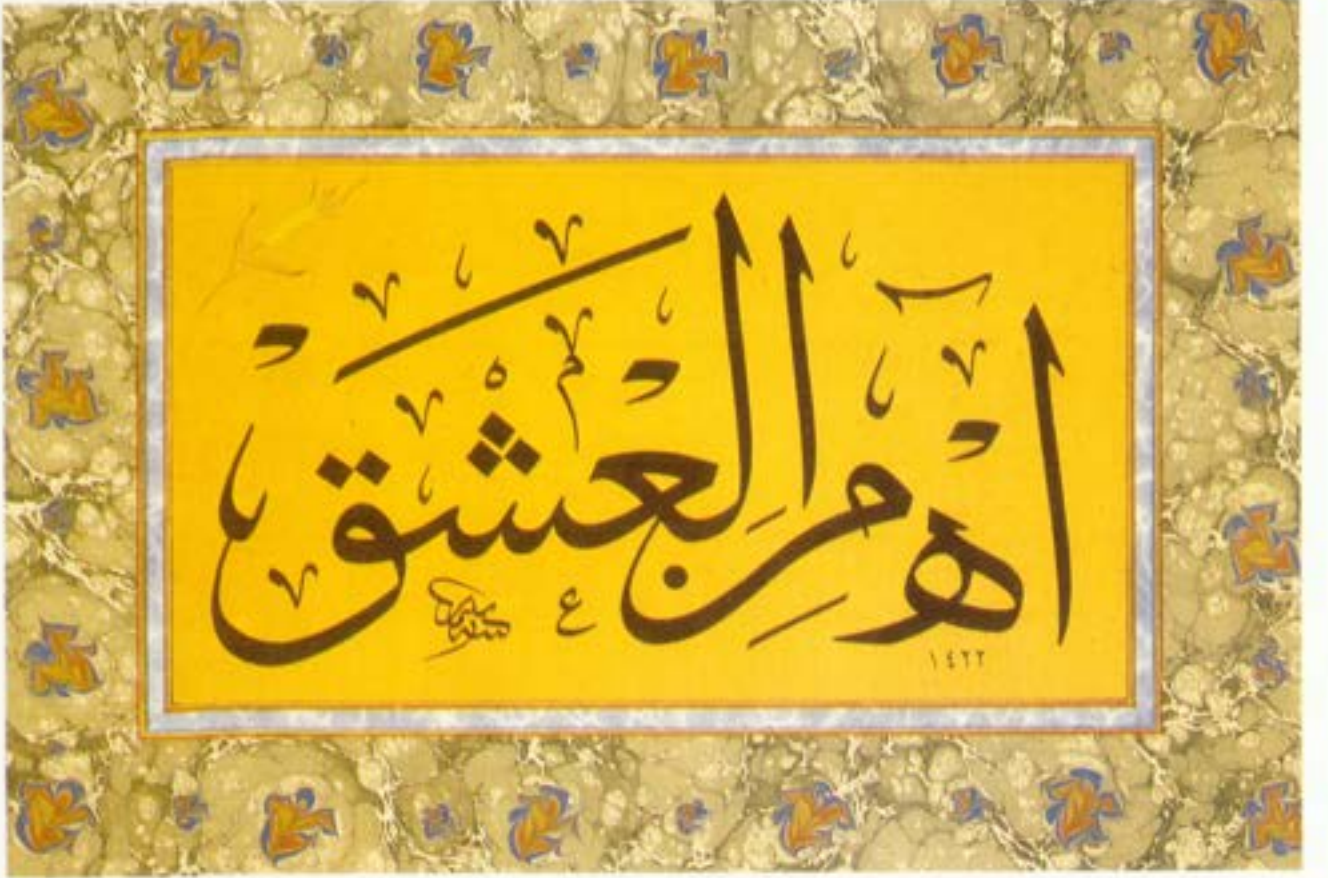 آه من العشق
١٤٢٢